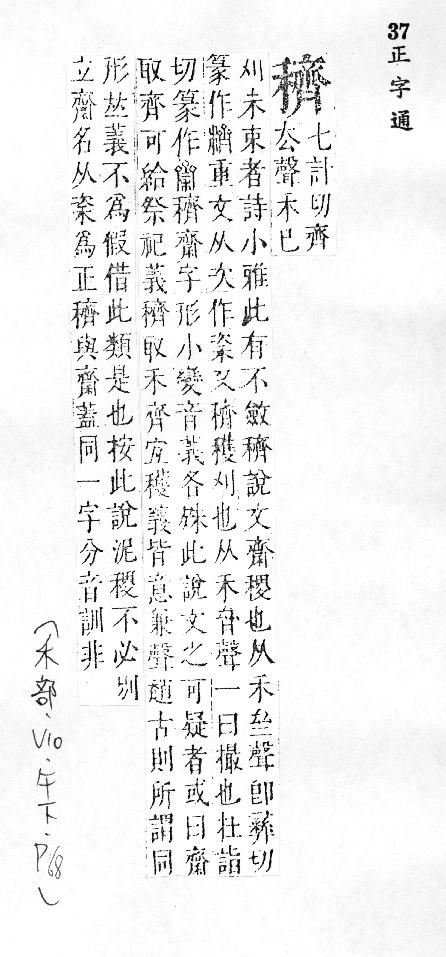 37
正字通
穧
七計切齊
去聲禾已
刈未束者詩小雅此有不斂穧說文齋稷也从禾亝聲卽彝切
篆作重文从次作秶又穧穫刈也从禾聲一曰撮也壯詣
切篆作穧齋字形小變音義各殊此說文之可疑者或曰齋
取齊可給祭祀義穧取禾齊宜穫義皆意兼聲趙古則所謂同
形夶義不為假借此類是也按此說泥稷不必別
立齋名从秶為正穧與齋蓋同一字分音訓非
(禾部.V10.午下.P68)